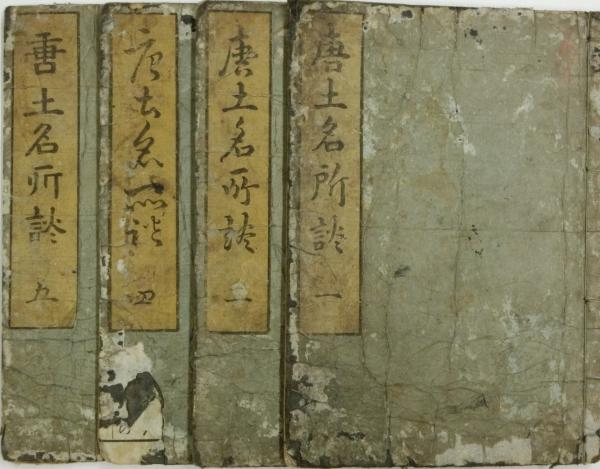 唐土名所談 一
唐土名所談 二
唐土名所談 四
唐土名所談 五